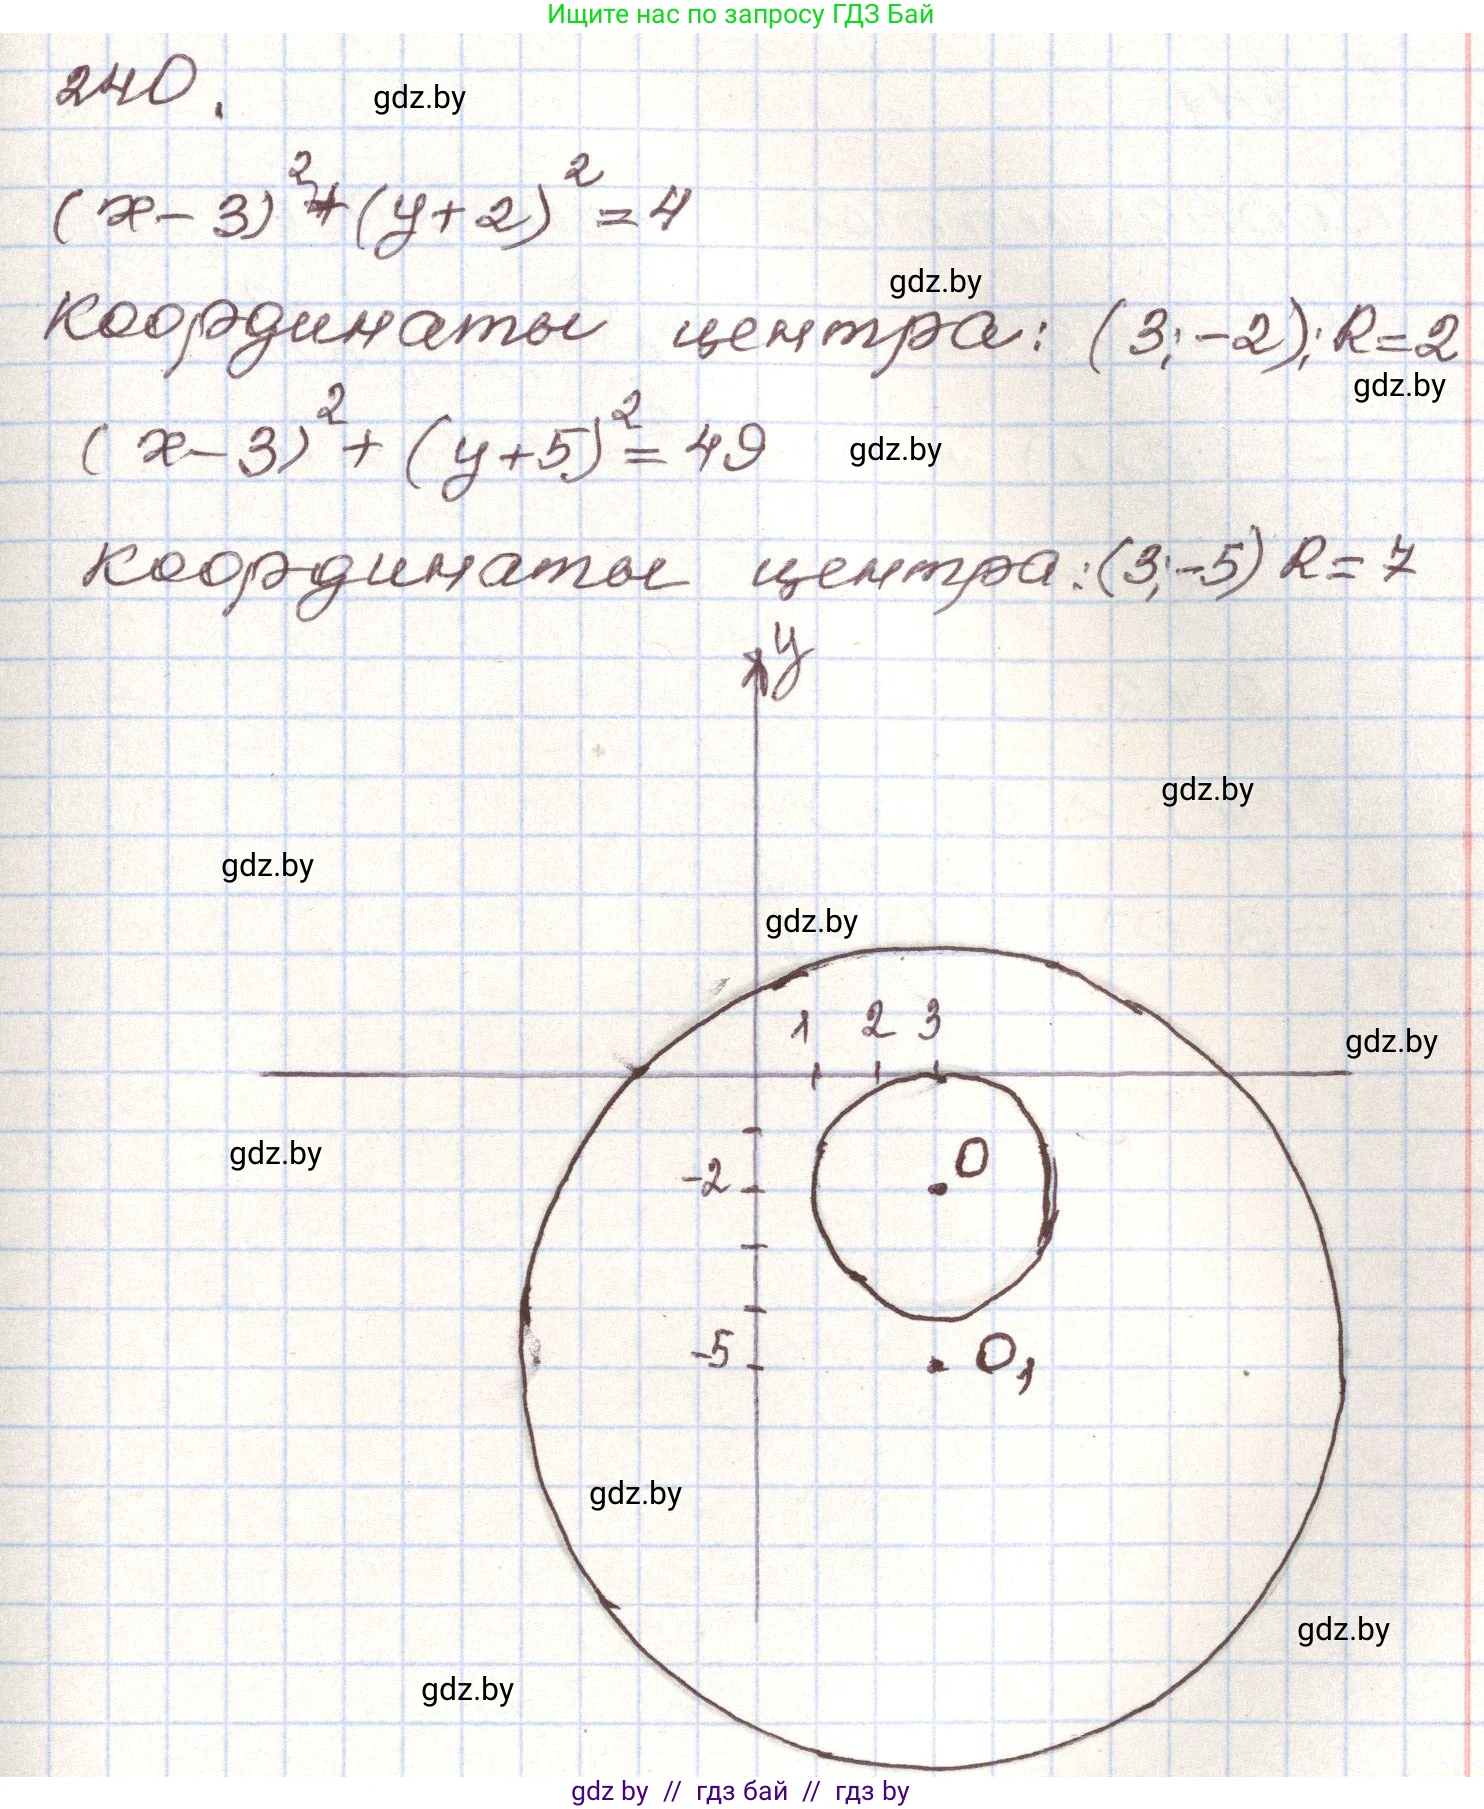 Ищите нас по запросу ГДЗ Бай
240.
gdz.by
(x-3)²+(y+2)²=4
gdz.by
координаты центра: (3;-2); R=2
gdz.by
(x-3)²+(y+5)²=49
gdz.by
координаты центра:(3;-5) R=7
y
gdz.by
gdz.by
gdz.by
1 2 3
gdz.by
gdz.by
O
-2
-5
O₁
gdz.by
gdz.by
gdz.by
gdz by // гдз бай // гдз by